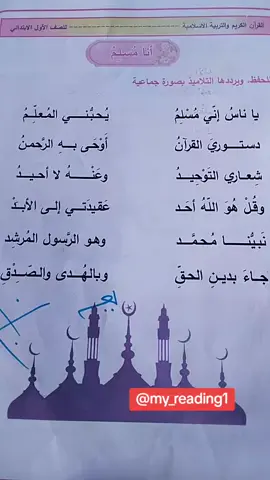 القرآن الكريم والتربية الاسلامية
للصف الأول الابتدائي
أنا مُسْلِمٌ
للحفظ، ويرددها التلاميذ بصورة جماعية
يا ناسُ إنّي مُسْلِمُ يُحبُّنـي المُعلِّمُ
دستوريَ القرآنُ أوْحَى بهِ الرَّحمنُ
شِعاري التّوْحِيدُ وعَنْهُ لا أحيدُ
وقُلْ هُوَ اللّهُ أحَد عَقيدَتي إلى الأبدْ
نَبيُّنا مُحمَّد وهو الرَّسول المُرشِد
جاءَ بدينِ الحقِّ وبالهُدى والصِّدْقِ
@my_reading1